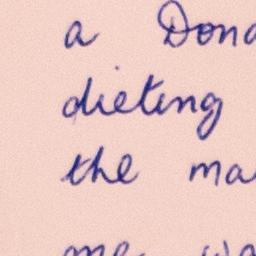 a Dona
dieting
the ma
me wa